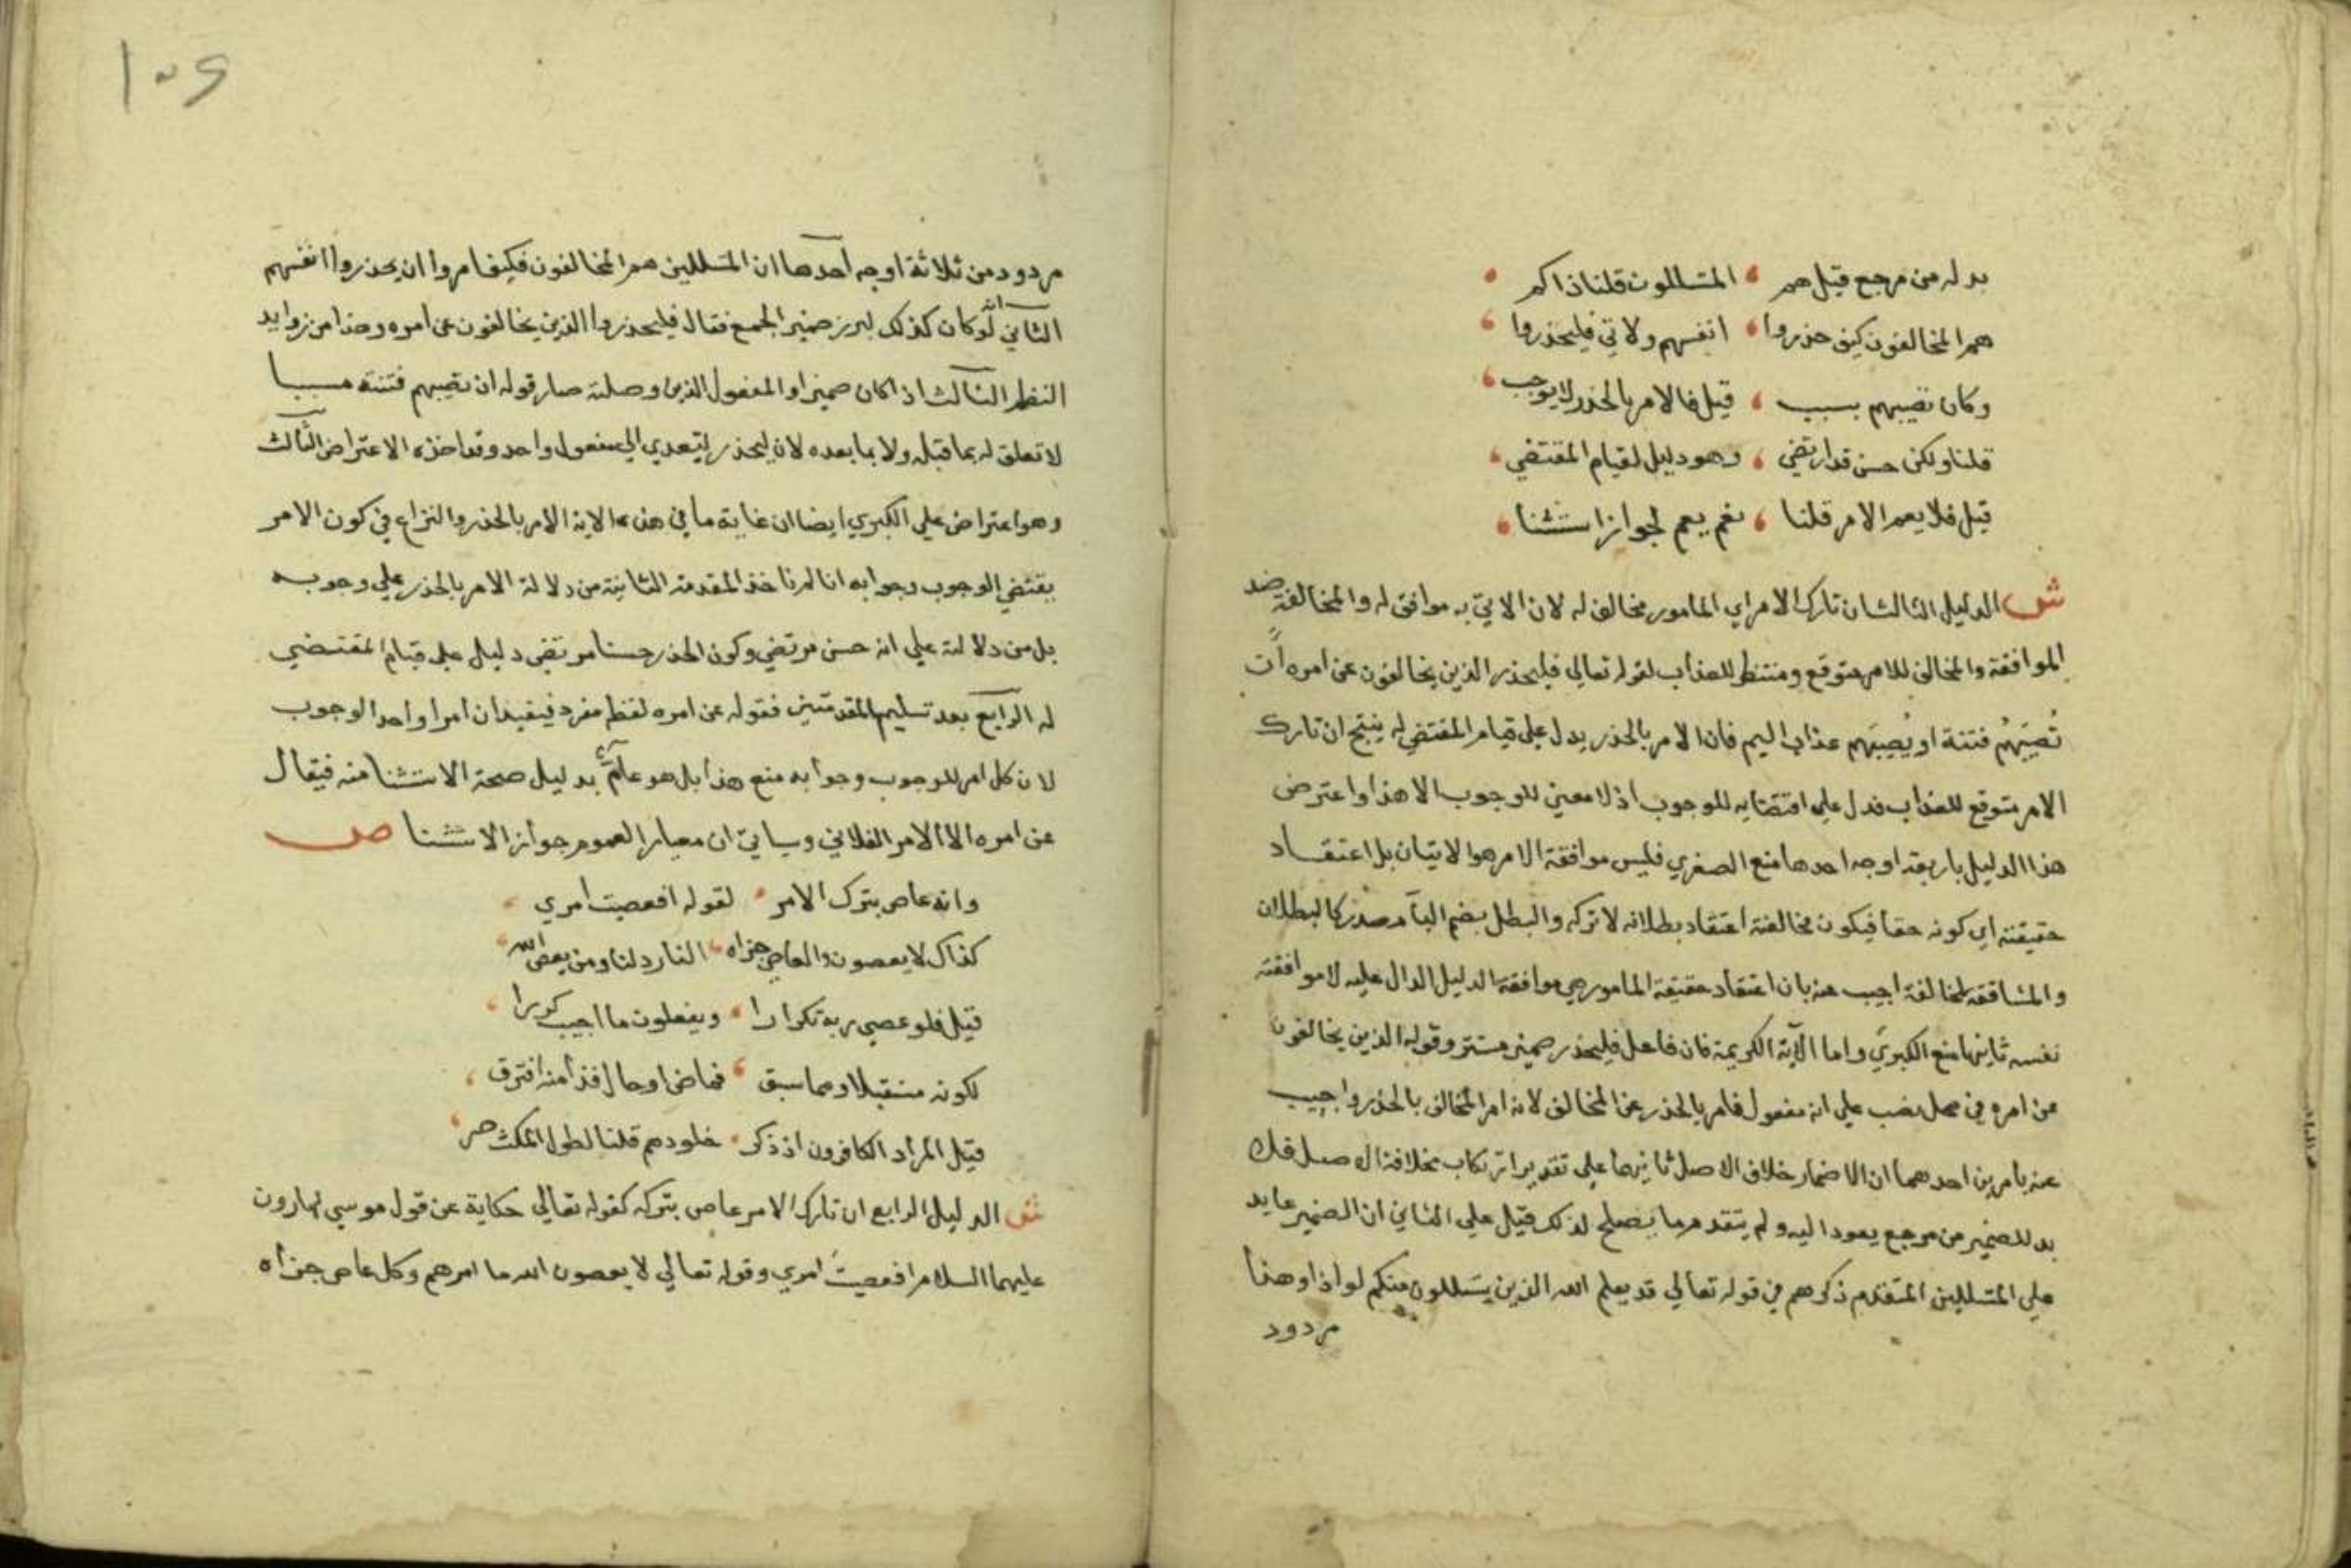 بدله من مرجع قيل هم المتسللون قلنا ذاكم
هم المخالفون كيف حذروا انفسهم ولاتي فليحذروا
وكان تصيبهم بسبب قيل فالامر بالحذر لا يوجب
قلنا ولكن حسن قد ارتضي وهو دليل لقيام المقتضي
قيل فلا يعم الامر قلنا نعم يعم لجواز استثنا
ش الدليل الثالث ان تارك الامر اي المامور مخالف له لان الاتي به موافق له والمخالفة ضد
الموافقة والمخالف للامر متوقع ومنتظر للعذاب لقوله تعالي فليحذر الذين يخالفون عن امره ان
تُصيبَهُم فتنة او يُصيبَهم عذاب اليم فان الامر بالحذر يدل علي قيام المقتضي له ينتج ان تارك
الامر متوقع للعذاب فدل علي اقتضايه للوجوب اذ لا معني للوجوب الا هذا واعترض
هذا الدليل باربعة اوجه احدها منع الصغري فليس موافقة الامر هو الاتيان بل اعتقاد
حقيقته اي كونه حقا فيكون مخالفته اعتقاد بطلانه لا تركه والبطل بضم الباء مصدر كالبطلان
والمشاققة المخالفة اجيب عنه بان اعتقاد حقيقة المامور هي موافقة الدليل الدال عليه لا موافقته
نفسه ثانيها منع الكبري واما الآية الكريمة فان فاعل فليحذر ضمير مستتر وقوله الذين يخالفون
عن امره في محل نصب علي انه مفعول فامر بالحذر عن المخالف لا انه امر المخالف بالحذر واجيب
عنه بامرين احدهما ان الاضمار خلاف الاصل ثانيهما علي تقدير ارتكاب مخلافة الاصل فلا
بد للضمير من مرجع يعود اليه ولم يتقدم ما يصلح لذلك قيل علي الثاني ان الضمير عايد
علي المتسللين المتقدم ذكرهم في قوله تعالي قد يعلم الله الذين يتسللون منكم لواذا وهذا
مردود
١٠٦
مردود من ثلاثة اوجه احدها ان المتسللين هم المخالفون فكيف امروا ان يحذروا انفسهم
الثاني انه لو كان كذلك لبرز ضمير الجمع فقال فليحذروا الذين يخالفون عن امره وهذا من زوايد
النظم الثالث اذا كان ضميرا والمفعول الذين وصلته صار قوله ان تصيبهم فتنة مسببا
لا تعلق له بما قبله ولا بما بعده لان ليحذر يتعدي الي مفعول واحد وقد اخذه الاعتراض الثالث
وهو اعتراض علي الكبري ايضا ان غاية ما في هذه الاية الامر بالحذر والنزاع في كون الامر
يقتضي الوجوب وجوابه انا لم ناخذ المقدمة الثانية من دلالة الامر بالحذر علي وجوبه
بل من دلالته علي انه حسن مرتضي وكون الحذر حسنا مرتضي دليل علي قيام المقتضي
له الرابع بعد تسليم المقدمتين فقوله عن امره لفظ مفرد فيفيد ان امرا واحدا للوجوب
لا ان كل امر للوجوب وجوابه منع هذا بل هو عام بدليل صحة الاستثنا منه فيقال
عن امره الا الامر الفلاني وسياتي ان معيار العموم جواز الاستثنا ص
وانه عاص بترك الامر لقوله افعصيت امري
كذاك لا يعصون والعاصي جزاه النار دلنا ومن يعص الله
قيل فلو عصي ربه تكرارا ويفعلون ما اجيب كررا
لكونه مستقبلا وما سبق فماض او حال فذا منه افترق
قيل المراد الكافرون اذ ذكر خلودهم قلنا لطول المكث حر
ش الدليل الرابع ان تارك الامر عاص بتركه كقوله تعالي حكاية عن قول موسي لهارون
عليهما السلام افعصيت امري وقوله تعالي لا يعصون الله ما امرهم وكل عاص جزاه